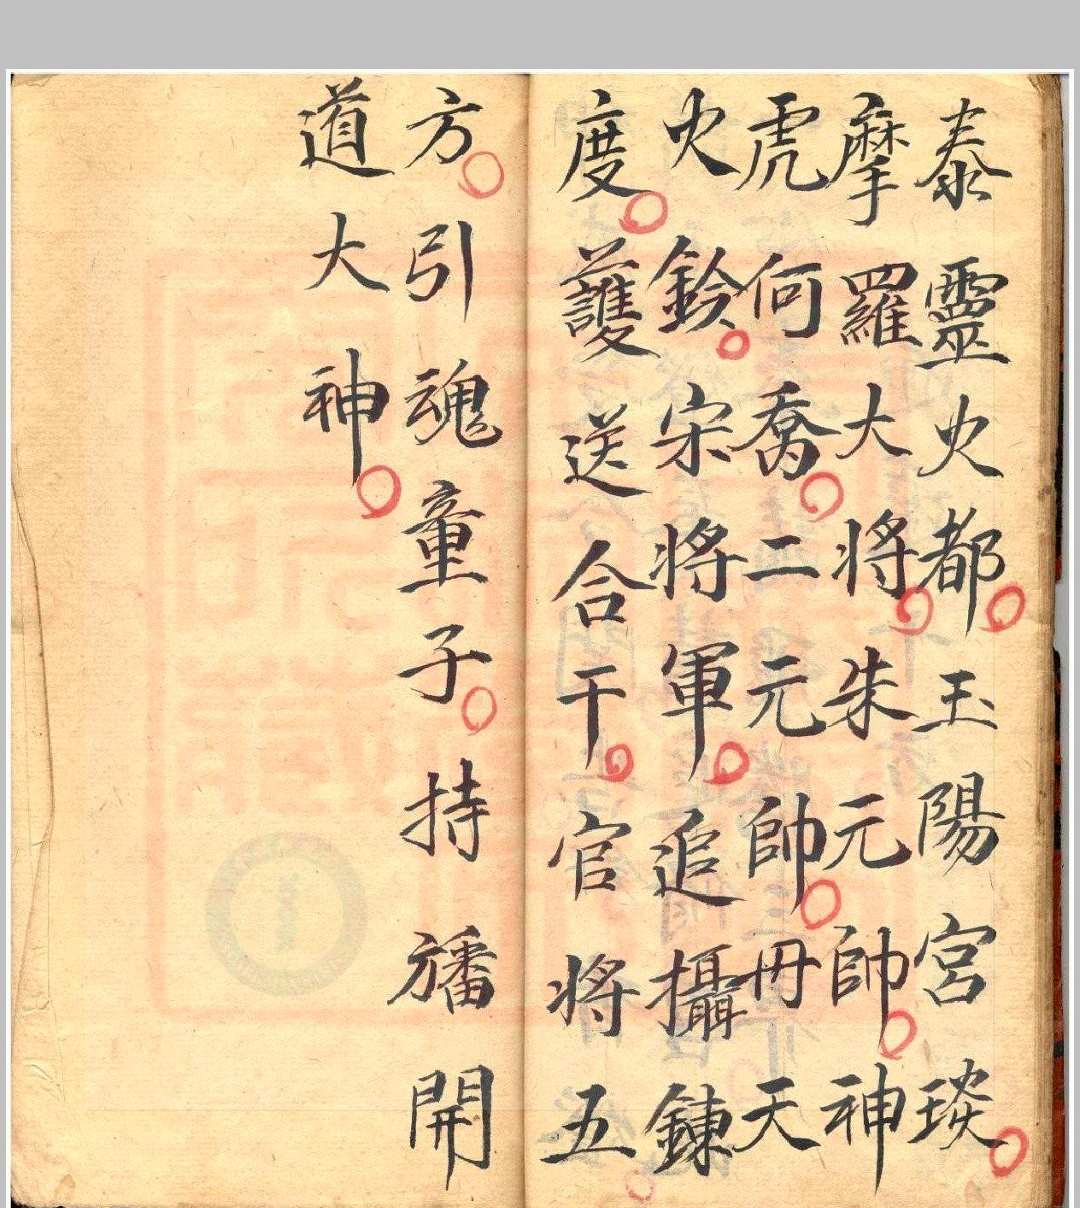 泰靈火都玉陽宮琰
摩羅大將朱元帥神
虎何喬二元帥毌天
火鈴宋將軍追攝鍊
度護送合干官將五
方引魂童子持旛開
道大神